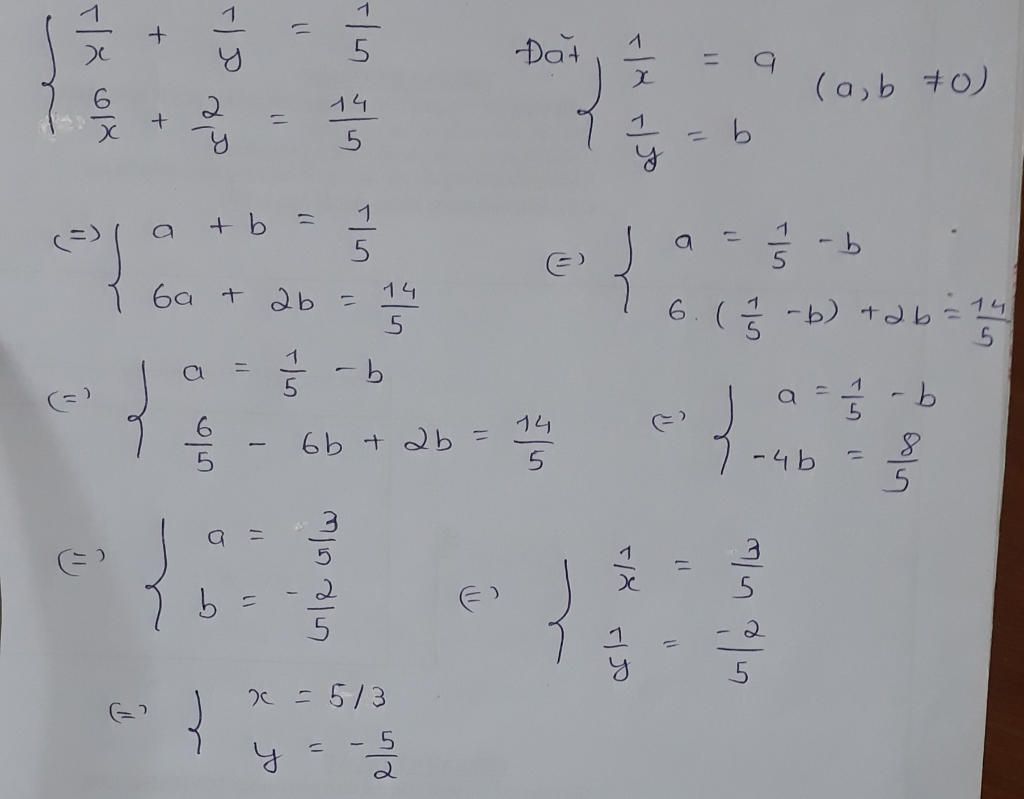 { 1/x + 1/y = 1/5
6/x + 2/y = 14/5
Đặt { 1/x = a
1/y = b
(a, b ≠ 0)
(=) { a + b = 1/5
6a + 2b = 14/5
(=) { a = 1/5 - b
6. (1/5 - b) + 2b = 14/5
(=) { a = 1/5 - b
6/5 - 6b + 2b = 14/5
(=) { a = 1/5 - b
-4b = 8/5
(=) { a = 3/5
b = -2/5
(=) { 1/x = 3/5
1/y = -2/5
(=) { x = 5/3
y = -5/2